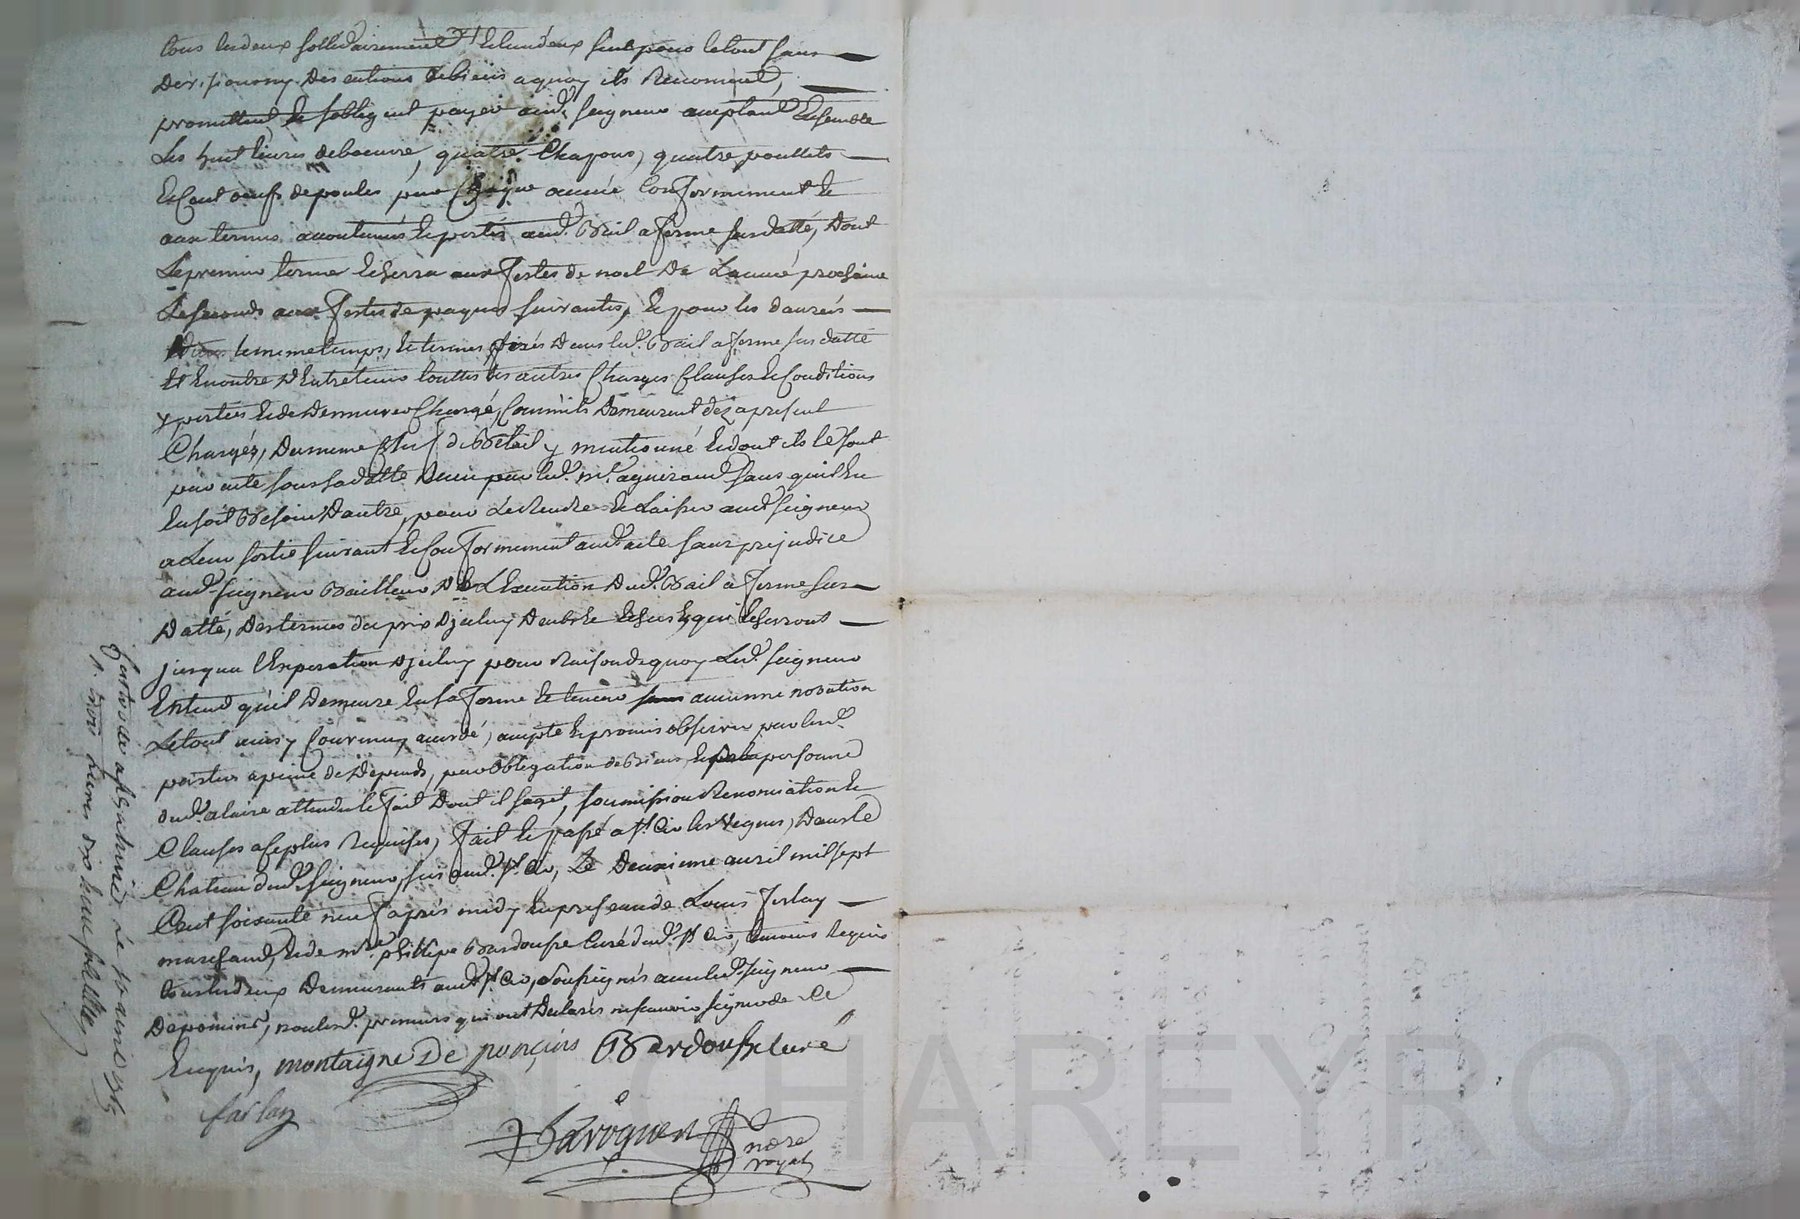 tous lesdeux sollidairement et lun deux seul pour letout sans
division ny des aitions de biens a quoy ils Renoncent,
promettent et sobligent payer aud.t seigneur aceptant Ensemble
Les huit livres debeurre, quatre Chapons, quatre poullets
et Cent oeufs depoules pour Chaque année Conformement et
aux termes acoutumés et portés aud.t Bail aferme susdatté, Dont
Lepremier terme Echerra aux festes de noel De Lannée prochaine
Lesecond aux festes depaques suivantes, et pour les danrées
lememe temps, et termes fixés Dans led.t Bail aferme susdatté
Et Enoutre D'Entretenir touttes les autres Charges Clauses et Conditions
y portées et de Demeurer Chargé, Comm'ils Demeurent dez apresent
Chargés, Dumeme de Bétail y mentionné et dont ils le sont
par acte sous sa datte Recu par led.t m.e sans quil En
En soit Besoin D'autre, pour Le Rendre et Laisser aud.t seigneur
a Leur sortie suivant et Conformement aud.t acte sans prejudice
aud.t seigneur Bailleur de L'Execution Dud.t Bail a ferme sus
Datté, Des termes du prix D'jceluy et qui Echerront
jusqua l'Expiration Djceluy pour Raison de quoy Led.t seigneur
Entend qu'il Demeure En sa forme et teneur sans aucunne novation
Le tout ainsy Convenu, acordé, acepté et promis observer par lesd.t
parties a peine de Dépends, par obligation de Biens, et de la personne
dud.t alaire attendu le fait Dont il sagit, soumission Renonciation et
Clauses a ce plus Requises, fait et passé a s.t Cir les vignes, Dans le
Chateau dud.t seigneur, sis aud.t s.t Cir, Le Deuxieme avril mil sept
Cent soixante neuf apres midy En presence de Louis ferlay
marchand, et de m.re philippe Bardousse Curé dud.t s.t Cir, temoins Requis
tous les deux Demeurants aud.t s.t Cir, soussignés avec led.t seigneur
Deponcins, non lesd.t preneurs qui ont Declarés ne scavoir signer de ce
Enquis, montaigne De poncins Bardousse curé
farlay
nore
royal
Le 10 avril 1769
R. trois Livres dix huit sols